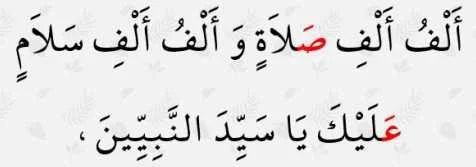 أَلْفُ أَلْفِ صَلاَةٍ وَ أَلْفُ أَلْفِ سَلاَمٍ
عَلَيْكَ يَا سَيِّدَ النَّبِيِّينَ ،